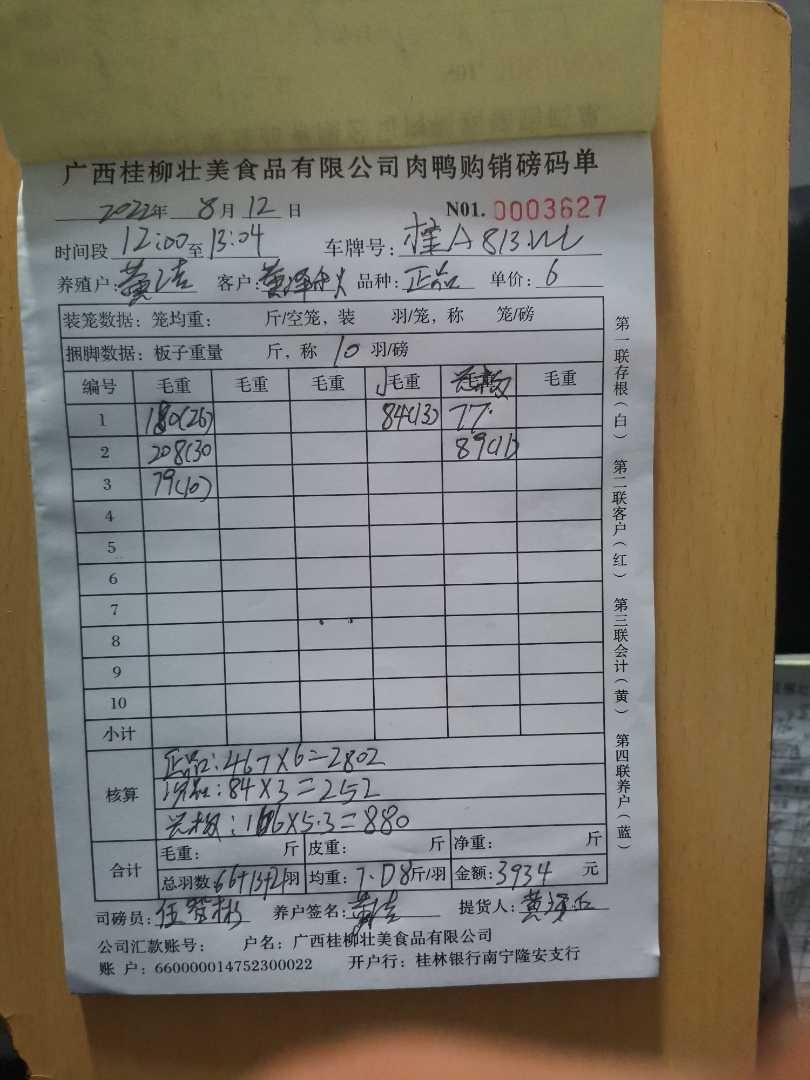 广西桂柳壮美食品有限公司肉鸭购销磅码单
2022年 8月 12日 N01. 0003627
时间段 12:00 至 13:04 车牌号: 桂A813
养殖户: 黄 客户: 黄泽 品种: 正品 单价: 6
装笼数据: 笼均重: 斤/空笼, 装 羽/笼, 称 笼/磅
捆脚数据: 板子重量 斤, 称 10 羽/磅
编号 毛重 毛重 毛重 毛重 毛重
1 180(26) 84(13) 77.
2 208(30 89(11)
3 79(10)
4
5
6
7
8
9
10
小计
核算
正品:467×6=2802
84×3=252
166×5.3=880
合计 毛重: 斤 皮重: 斤 净重: 斤
总羽数: 66+13+21羽 均重: 7.08斤/羽 金额: 3934 元
司磅员: 任 养户签名: 黄 提货人: 黄
公司汇款账号: 户名: 广西桂柳壮美食品有限公司
账 户: 660000014752300022 开户行: 桂林银行南宁隆安支行
第一联存根(白) 第二联客户(红) 第三联会计(黄) 第四联养户(蓝)